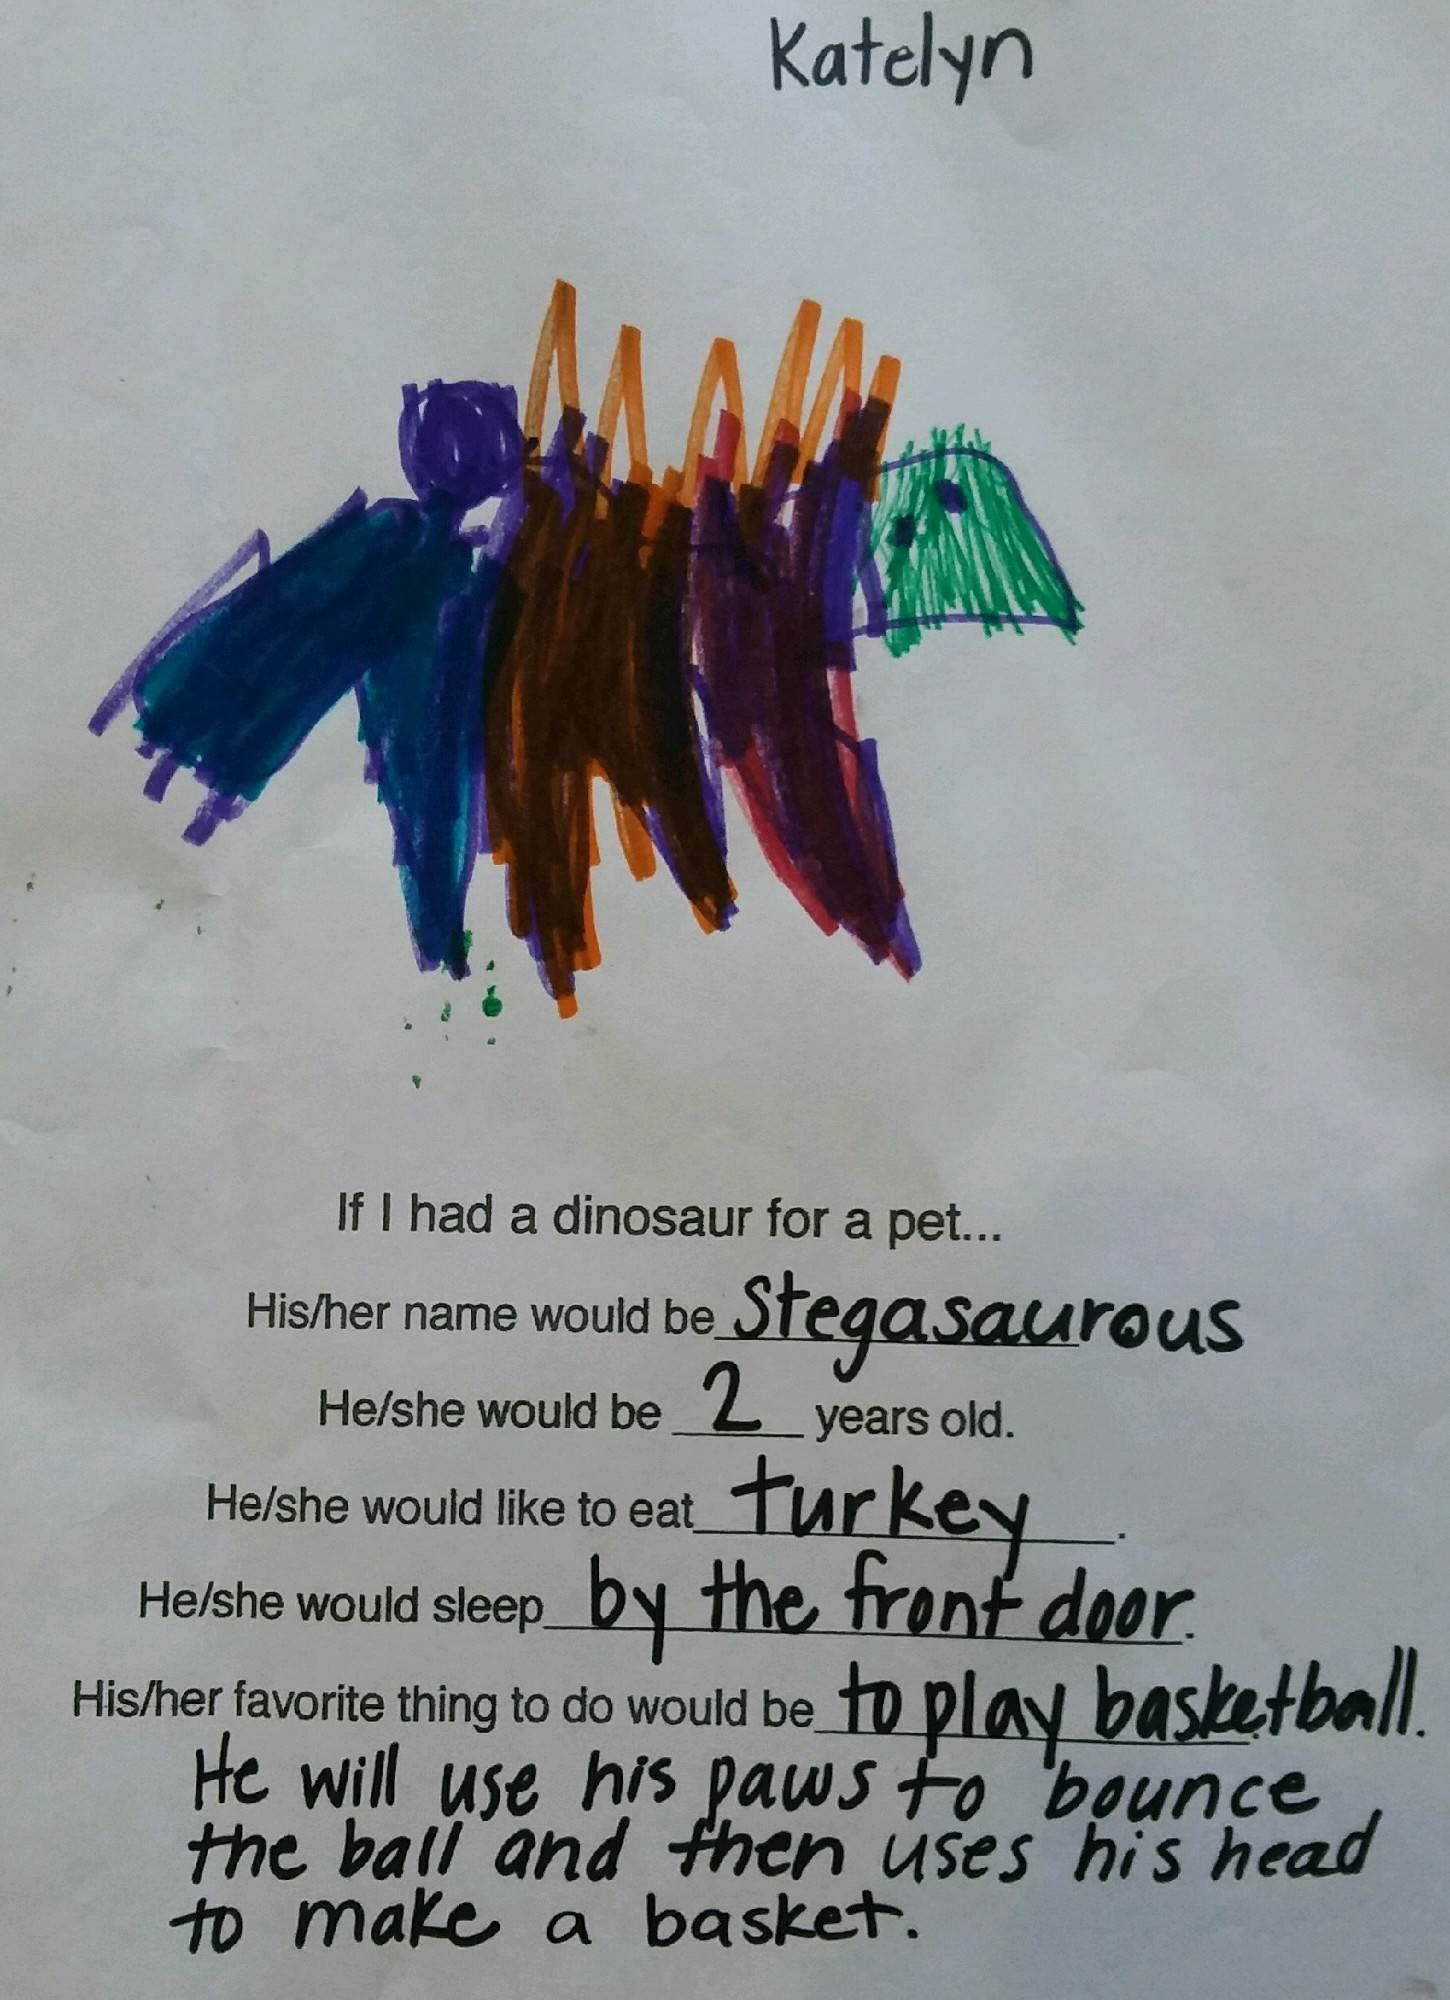 Katelyn
If I had a dinosaur for a pet...
His/her name would be Stegasaurous
He/she would be 2 years old.
He/she would like to eat turkey.
He/she would sleep by the front door.
His/her favorite thing to do would be to play basketball.
He will use his paws to bounce
the ball and then uses his head
to make a basket.